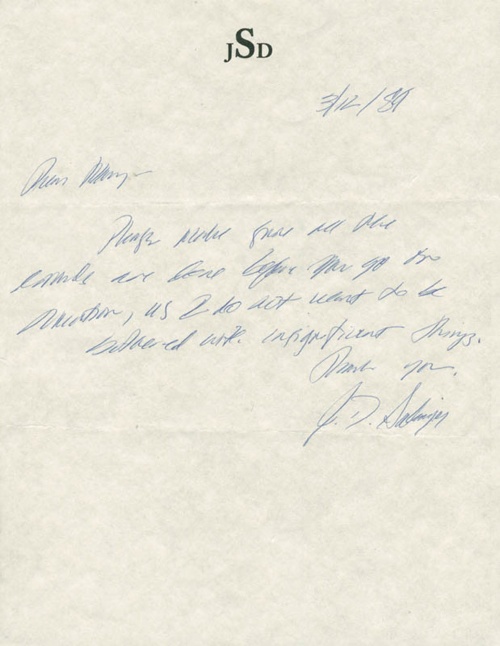 JSD
3/12/89
Dear
Please make sure all the
errands are done before you go on
vacation, as I do not want to be
bothered with insignificant things.
Thank you.
J. D. Salinger